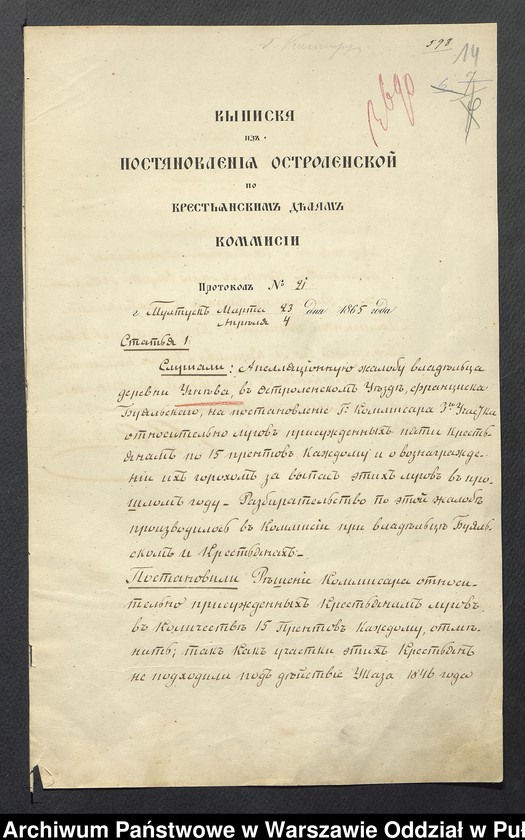 598
14
ВЫПИСКА
изъ
ПОСТАНОВЛЕНІЯ ОСТРОЛЕНСКОЙ
по
КРЕСТЬЯНСКИМЪ ДѢЛАМЪ
КОММИСІИ
Протоколъ № 21
г. Пултускъ Марта 23 дня 1865 года
Апрѣля 4
Статья 1.
Слушали: Апелляціонную жалобу владѣльца
деревни Унѣва, въ Остроленскомъ Уѣздѣ, Франциска
Буяльскаго, на постановленіе Гⁿ Коммисара 3го Участка
относительно луговъ присужденныхъ пяти Кресть-
янамъ по 15 прентовъ каждому и о вознагражде-
ніи ихъ горохомъ за выпасъ этихъ луговъ въ про-
шломъ году. - Разбирательство по этой жалобѣ
производилось въ Коммисіи при владѣльцѣ Буяль-
скомъ и Крестьянахъ. -
Постановили Рѣшеніе Коммисара относи-
тельно присужденныхъ Крестьянамъ луговъ,
въ количествѣ 15 Прентовъ каждому, отмѣ-
нить; такъ какъ участки этихъ Крестьянъ
не подходили подъ дѣйствіе Указа 1846 года
Archiwum Państwowe w Warszawie Oddział w Puł